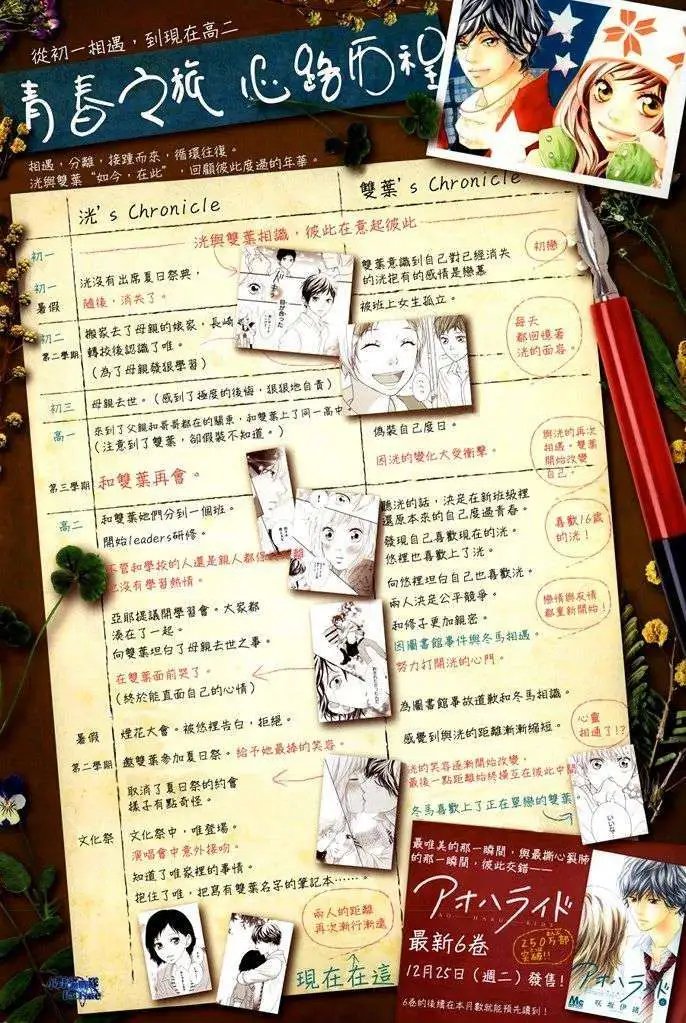 從初一相遇，到現在高二
青春之旅 心路历程
相遇，分離，接踵而來，循環往復。
洸與雙葉“如今，在此”，回顧彼此度過的年華。
洸's Chronicle
雙葉's Chronicle
初一
洸與雙葉相識，彼此在意起彼此
初一
暑假
洸沒有出席夏日祭典，
隨後，消失了。
雙葉意識到自己對已經消失
的洸抱有的感情是戀慕
初戀
被班上女生孤立。
初二
第二學期
搬家去了母親的娘家，長崎
轉校後認識了唯。
（為了母親發狠學習）
每天
都回憶著
洸的面容。
初三
母親去世。（感到了極度的後悔，狠狠地自責）
高一
來到了父親和哥哥都在的關東，和雙葉上了同一高中
（注意到了雙葉，卻假裝不知道。）
偽裝自己度日。
因洸的變化大受衝擊。
與洸的再次
相遇。雙葉
開始改變
自己。
第三學期
和雙葉再會。
高二
和雙葉她們分到一個班。
開始leaders研修。
聽洸的話，決定在新班級裡
還原本來的自己度過青春。
發現自己喜歡現在的洸。
悠裡也喜歡上了洸。
喜歡16歲
的洸！
不管和學校的人還是親人都
也沒有學習熱情。
向悠裡坦白自己也喜歡洸。
兩人決定公平競爭。
和修子更加親密。
戀情與友情
都重新開始！
亞耶提議開學習會。大家都
湊在了一起。
向雙葉坦白了母親去世之事。
因圖書館事件與冬馬相遇。
努力打開洸的心門。
在雙葉面前哭了。
（終於能直面自己的心情）
暑假
煙花大會。被悠裡告白，拒絕。
為圖書館事故道歉和冬馬相識。
感覺到與洸的距離漸漸縮短。
心靈
相通了!?
第二學期
邀雙葉參加夏日祭。給予她最棒的笑容。
取消了夏日祭的約會
樣子有點奇怪。
洸的笑容逐漸開始改變，
最後一點距離始終橫亙在彼此中間
冬馬喜歡上了正在單戀的雙葉。
文化祭
文化祭中，唯登場。
演唱會中意外接吻。
知道了唯家裡的事情。
抱住了唯，把寫有雙葉名子的筆記本……。
兩人的距離
再次漸行漸遠
現在在這
最唯美的那一瞬間，與最撕心裂肺
的那一瞬間，彼此交錯——
アオハライド
AO HARU RIDE
最新6卷
250万部
突破!!
12月25日（週二）發售！
6卷的後續在本月數就能預先讀到！
アオハライド
咲坂伊緒